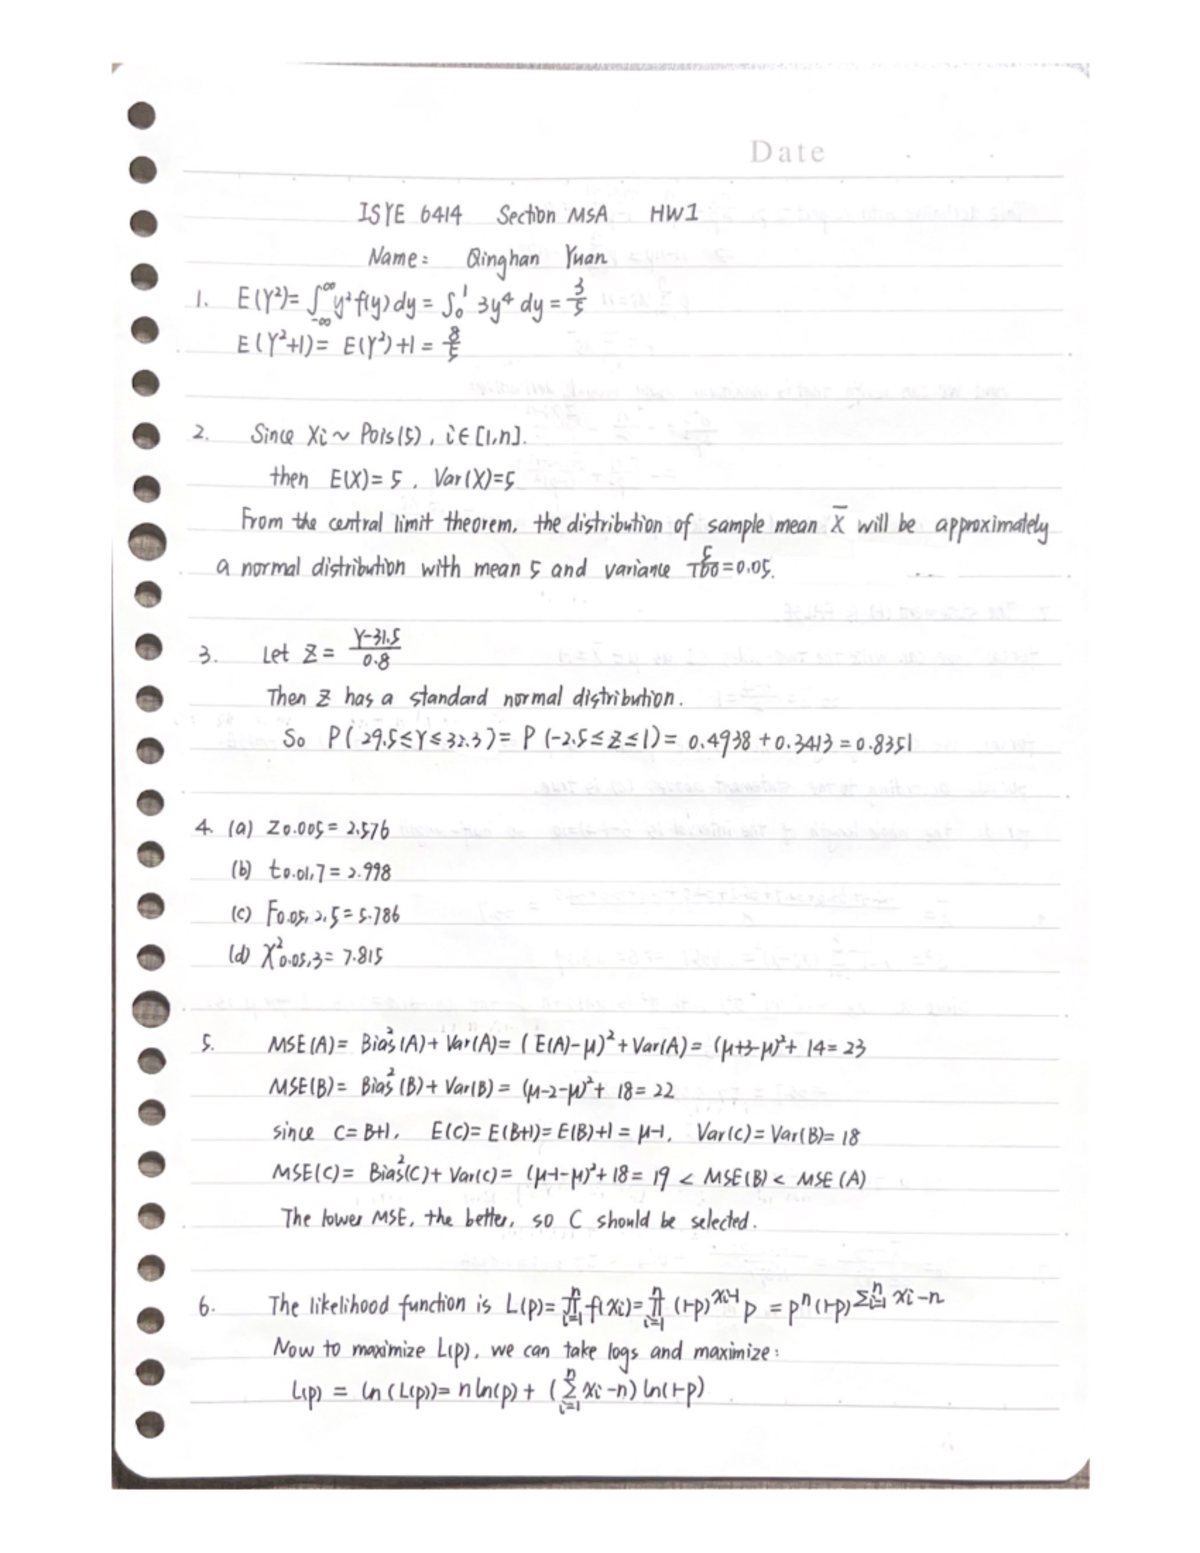 Date
ISYE 6414 Section MSA HW1
Name: Qinghan Yuan
1. E(Y²)= ∫_{-∞}^{∞} y² f(y) dy = ∫_0^1 3y⁴ dy = 3/5
E(Y²+1)= E(Y²)+1 = 8/5
2. Since Xi ~ Pois(5), i∈[1,n].
then E(X)= 5 . Var(X)=5
From the central limit theorem, the distribution of sample mean X̄ will be approximately
a normal distribution with mean 5 and variance 5/100=0.05.
3. Let Z = (Y-31.5)/0.8
Then Z has a standard normal distribution.
So P( 29.5≤Y≤32.3)= P (-2.5≤Z≤1)= 0.4938 +0.3413 = 0.8351
4. (a) Z0.005 = 2.576
(b) t0.01,7 = 2.998
(c) F0.05,2,5 = 5.786
(d) χ²0.05,3 = 7.815
5. MSE(A)= Bias²(A)+ Var(A)= ( E(A)-μ)²+Var(A)= (μ+3-μ)²+ 14= 23
MSE(B)= Bias²(B)+ Var(B)= (μ-2-μ)²+ 18= 22
since C= B+1, E(C)= E(B+1)= E(B)+1 = μ-1, Var(C)= Var(B)= 18
MSE(C)= Bias²(C)+ Var(C)= (μ-1-μ)²+18= 19 < MSE(B)< MSE (A)
The lower MSE, the better, so C should be selected.
6. The likelihood function is L(p)= ∏_{i=1}^n f(xi)= ∏_{i=1}^n (1-p)^{xi-1} p = p^n (1-p)^{Σ_{i=1}^n xi-n}
Now to maximize L(p), we can take logs and maximize:
L(p) = ln (L(p))= n ln(p) + (Σ_{i=1}^n xi -n) ln(1-p)